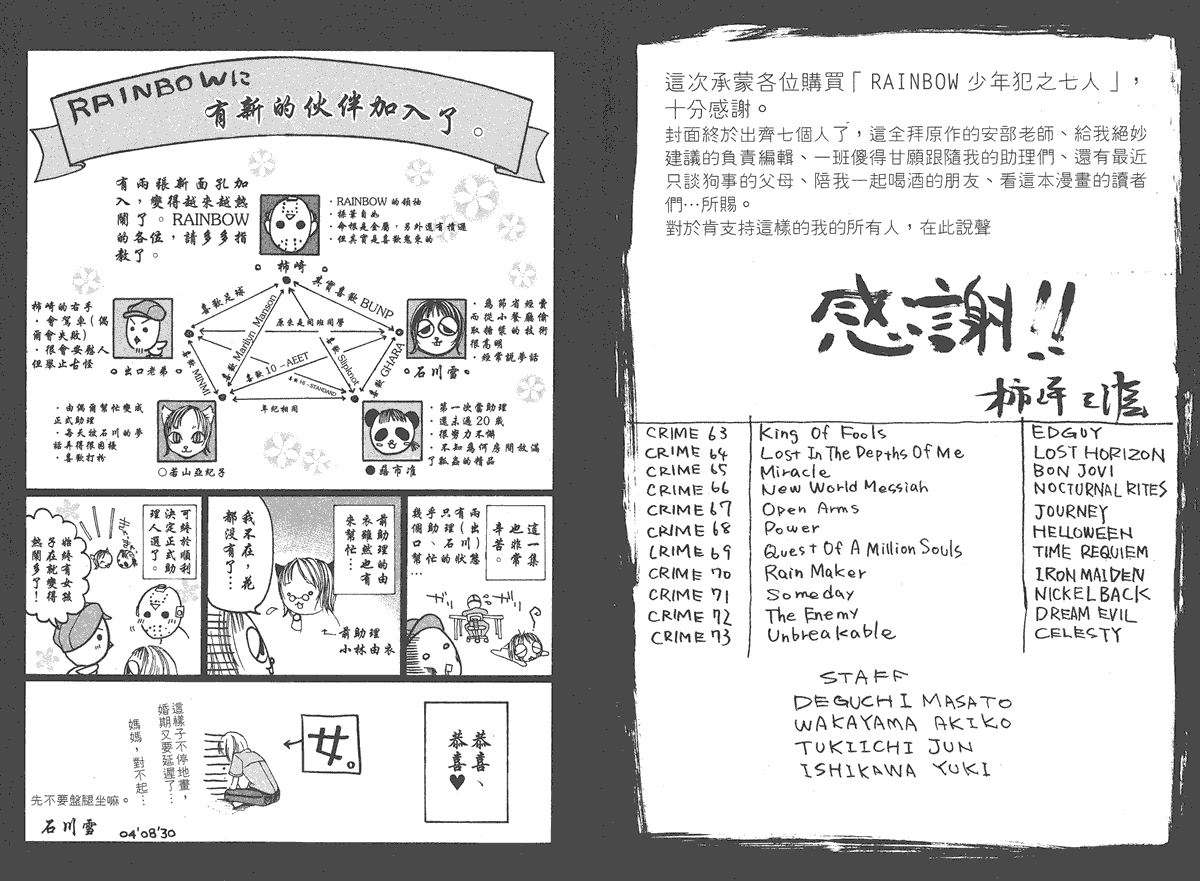 RAINBOWに
有新的伙伴加入了。
有兩張新面孔加
入，變得越來越熱
鬧了。RAINBOW
的各位，請多多指
教了。
・RAINBOW的領袖
・操筆自如
・命根是金屬，另外還有積遜
・但其實是喜歡鬼束的
柿崎
柿崎的右手
・會駕車（偶
爾會失敗）
・很會安慰人
但舉止古怪
○出口老弟○
・為節省經費
而從小餐廳偷
取糖漿的技術
很高明
・經常說夢話
○石川雪○
喜歡足球
其實喜歡BUNP
原來是同班同學
喜歡Marilyn Manson
喜歡Slipknot
喜歡10-AEET
喜歡HI-STANDARD
喜歡MINMI
喜歡GHARA
年紀相同
・由偶爾幫忙變成
正式助理
・每天被石川的夢
話弄得很困擾
・喜歡打扮
○若山亞紀子
・第一次當助理
・還未過20歲
・很努力不懈
・不知為何房間放滿
了狐蟲的精品
這一集
也非常
辛苦。
兩（出口、
有石川）狀態
只理忙
乎助
幾個…
前助理的由
衣雖然也有
來幫忙…
我不在，花
都沒有了…
←前助理
小林由衣
可終於順利
決定正式助
理人選了。
始終有女孩
子在就變得
熱鬧多了！
恭喜、
恭喜♥
女。
這樣子不停地畫，
婚期又要延遲了…
媽媽，對不起…
先不要盤腿坐嘛。
石川雪
04'08'30
這次承蒙各位購買「RAINBOW 少年犯之七人」，
十分感謝。
封面終於出齊七個人了，這全拜原作的安部老師、給我絕妙
建議的負責編輯、一班傻得甘願跟隨我的助理們、還有最近
只談狗事的父母、陪我一起喝酒的朋友、看這本漫畫的讀者
們…所賜。
對於肯支持這樣的我的所有人，在此說聲
感謝!!
CRIME 63 King Of Fools EDGUY
CRIME 64 Lost In The Depths Of Me LOST HORIZON
CRIME 65 Miracle BON JOVI
CRIME 66 New World Messiah NOCTURNAL RITES
CRIME 67 Open Arms JOURNEY
CRIME 68 Power HELLOWEEN
CRIME 69 Quest Of A Million Souls TIME REQUIEM
CRIME 70 Rain Maker IRON MAIDEN
CRIME 71 Someday NICKELBACK
CRIME 72 The Enemy DREAM EVIL
CRIME 73 Unbreakable CELESTY
STAFF
DEGUCHI MASATO
WAKAYAMA AKIKO
TUKIICHI JUN
ISHIKAWA YUKI